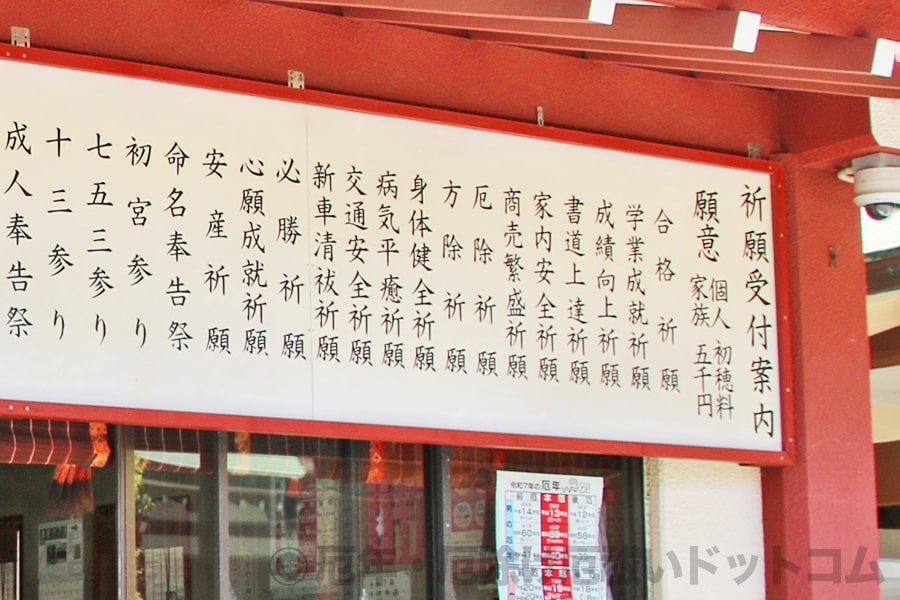 祈願受付案内
願意 個人 初穂料
家族 五千円
合格祈願
学業成就祈願
成績向上祈願
書道上達祈願
家内安全祈願
商売繁盛祈願
厄除祈願
方除祈願
身体健全祈願
病気平癒祈願
交通安全祈願
新車清祓祈願
必勝祈願
心願成就祈願
安産祈願
命名奉告祭
初宮参り
七五三参り
十三参り
成人奉告祭
令和7年の厄年
前厄 本厄 後厄
平成14年 平成13年 平成12年
昭和60年 昭和59年 昭和58年